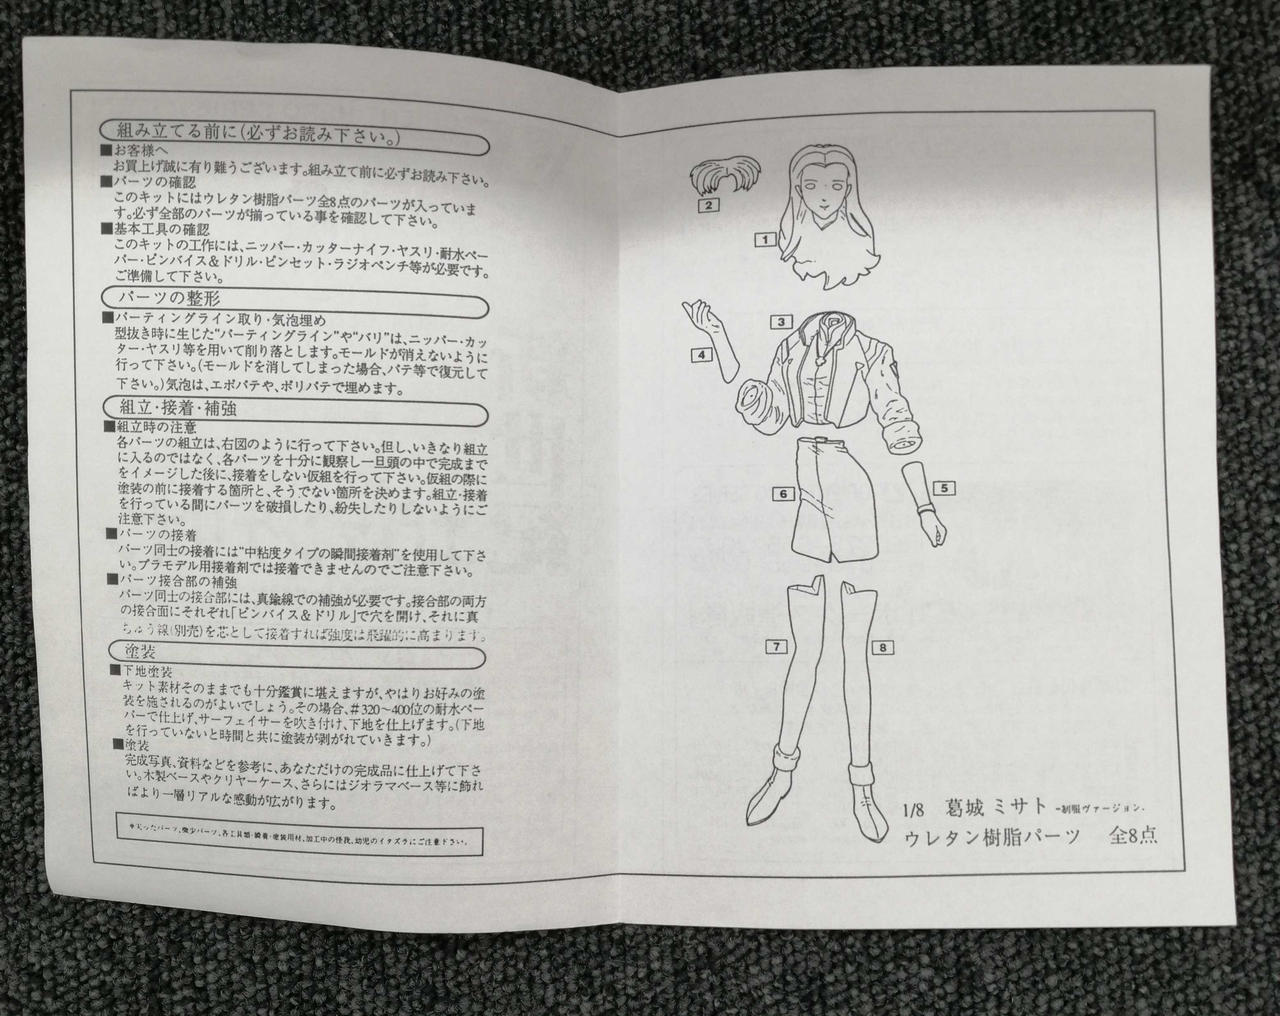 組み立てる前に(必ずお読み下さい。)
■お客様へ
お買上げ誠に有り難うございます。組み立て前に必ずお読み下さい。
■パーツの確認
このキットにはウレタン樹脂パーツ全8点のパーツが入っていま
す。必ず全部のパーツが揃っている事を確認して下さい。
■基本工具の確認
このキットの工作には、ニッパー・カッターナイフ・ヤスリ・耐水ペー
パー・ピンバイス&ドリル・ピンセット・ラジオペンチ等が必要です。
ご準備して下さい。
パーツの整形
■パーティングライン取り・気泡埋め
型抜き時に生じた“パーティングライン”や“バリ”は、ニッパー・カッ
ター・ヤスリ等を用いて削り落とします。モールドが消えないように
行って下さい。(モールドを消してしまった場合、パテ等で復元して
下さい。)気泡は、エポパテや、ポリパテで埋めます。
組立・接着・補強
■組立時の注意
各パーツの組立は、右図のように行って下さい。但し、いきなり組立
に入るのではなく、各パーツを十分に観察し一旦頭の中で完成まで
をイメージした後に、接着をしない仮組を行って下さい。仮組の際に
塗装の前に接着する箇所と、そうでない箇所を決めます。組立・接着
を行っている間にパーツを破損したり、紛失したりしないようにご
注意下さい。
■パーツの接着
パーツ同士の接着には“中粘度タイプの瞬間接着剤”を使用して下さ
い。プラモデル用接着剤では接着できませんのでご注意下さい。
■パーツ接合部の補強
パーツ同士の接合部には、真鍮線での補強が必要です。接合部の両方
の接合面にそれぞれ「ピンバイス&ドリル」で穴を開け、それに真
ちゅう線(別売)を芯として接着すれば強度は飛躍的に高まります。
塗装
■下地塗装
キット素材そのままでも十分鑑賞に堪えますが、やはりお好みの塗
装を施されるのがよいでしょう。その場合、#320〜400位の耐水ペー
パーで仕上げ、サーフェイサーを吹き付け、下地を仕上げます。(下地
を行っていないと時間と共に塗装が剥がれていきます。)
■塗装
完成写真、資料などを参考に、あなただけの完成品に仕上げて下さ
い。木製ベースやクリヤーケース、さらにはジオラマベース等に飾れ
ばより一層リアルな感動が広がります。
※尖ったパーツ、微少パーツ、各工具類・接着・塗装用材、加工中の怪我、幼児のイタズラにご注意下さい。
2
1
3
4
6
5
7
8
1/8 葛城 ミサト -制服ヴァージョン-
ウレタン樹脂パーツ 全8点